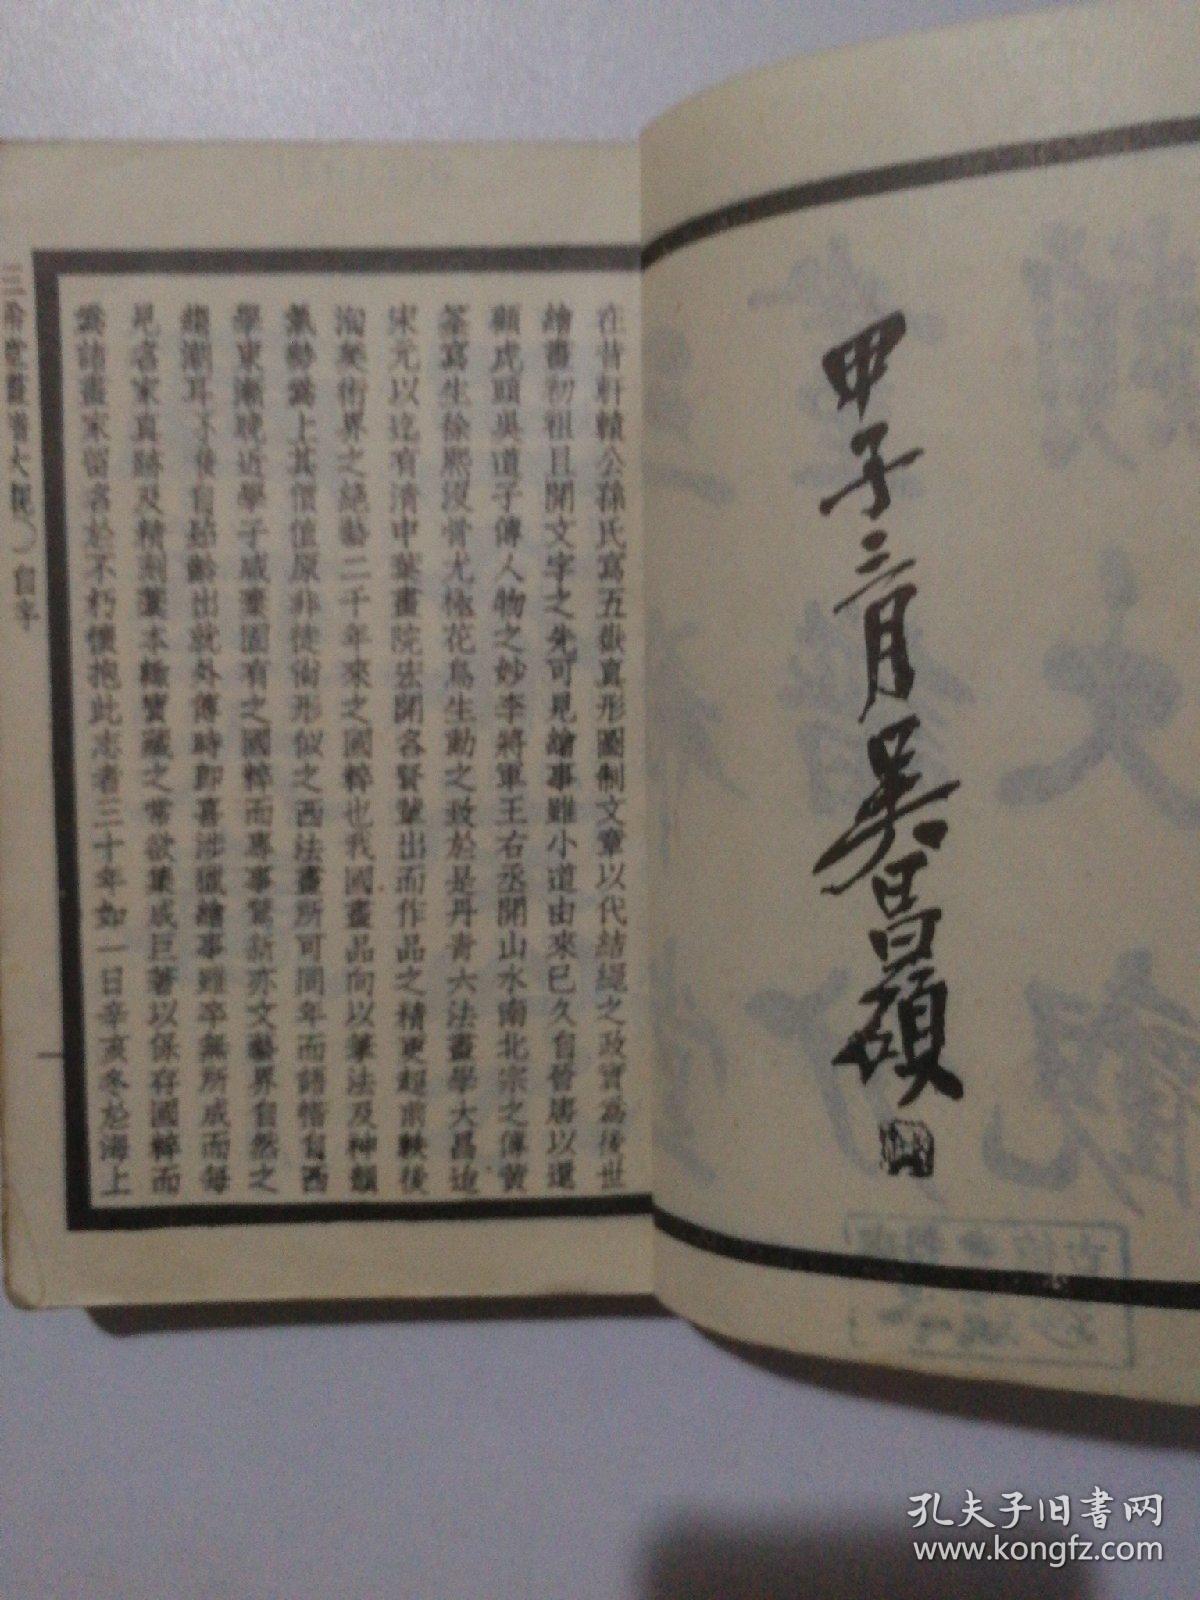 甲子三月吳昌碩
在昔軒轅公孫氏寫五嶽眞形圖制文章以代結繩之政實爲後世
繪畫初祖且開文字之先可見繪事雖小道由來已久自晉唐以還
顧虎頭吳道子傳人物之妙李將軍王右丞開山水南北宗之傳黃
筌寫生徐熙沒骨尤極花鳥生動之致於是丹青六法畫學大昌迨
宋元以迄有清中葉畫院宏開名賢輩出而作品之精更超前軼後
洵藝術界之絕藝二千年來之國粹也我國畫品向以筆法及神韻
氣勢爲上其價值原非徒尚形似之西法畫所可同年而語惜自西
學東漸晚近學子咸棄固有之國粹而專事騖新亦文藝界自然之
潮耳不佞自齠齡出就外傅時即喜涉獵繪事雖卒無所成而每
見名家眞跡及精刻藁本輒寶藏之常欲集成巨著以保存國粹而
爲諸畫家留名於不朽懷抱此志者三十年如一日辛亥冬於海上
三希堂畫譜大觀 自序
一
孔夫子旧书网
www.kongfz.com